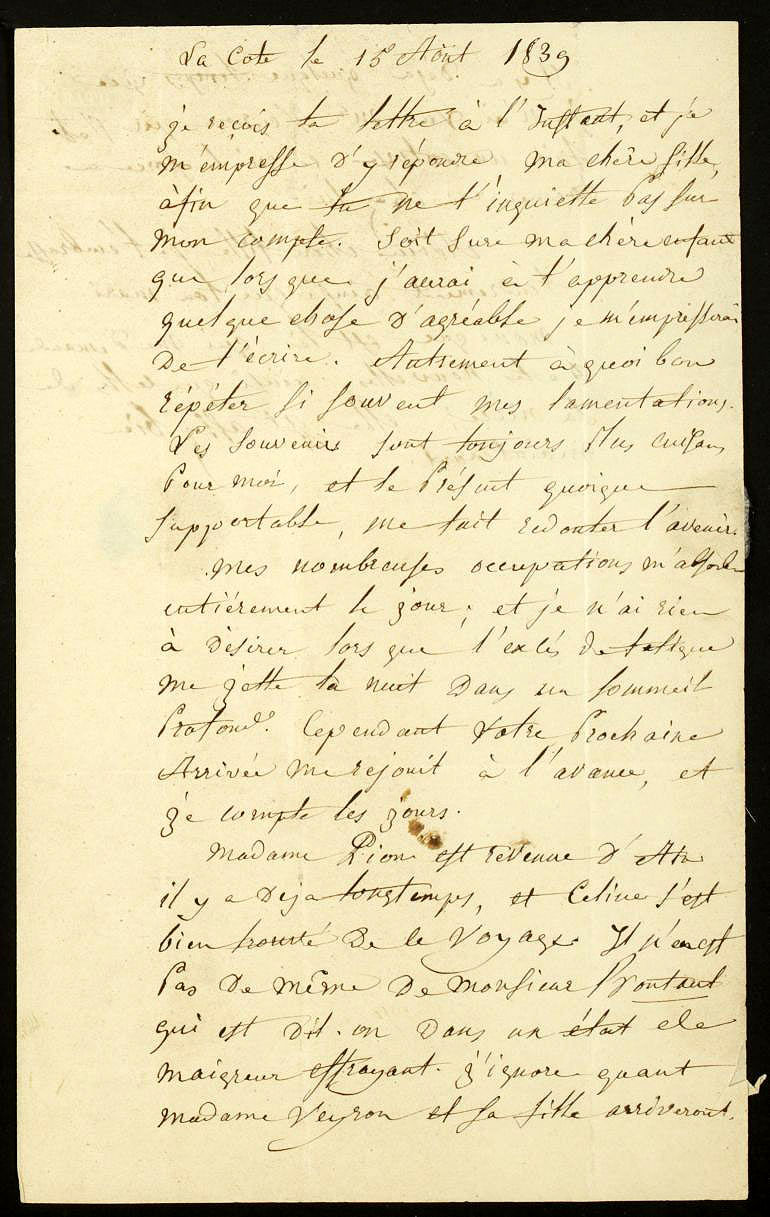 La Cote le 15 Aôut 1839
je reçois ta lettre à l'Instant, et je
m'empresse d'y répondre ma chère fille,
àfin que tu ne t'inquiette Pas sur
mon compte. Soit sure ma chère enfant
que lors que j'aurai à t'apprendre
quelque chose d'agréable je m'empresserai
De t'écrire. Autrement à quoi bon
répéter si souvent mes lamentations.
Les souvenirs sont toujours Plus cuisans
Pour moi, et le Présent quoique
supportable, me fait redouter l'avenir.
mes nombreuses occupations m'absorbe
entiérement le jour; et je n'ai rien
à dèsirer lors que l'excés de fatigue
me jette la nuit Dans un sommeil
Profond. Cependant Votre Prochaine
Arrivée me rejouit à l'avance, et
je compte les jours.
Madame Pion est revenue d'Aix
il y a Deja longtemps, et Celine s'est
bien trouvé De le Voyage. Il n'en est
Pas De même De monsieur
qui est Dit-on Dans un état de
maigreur effrayant. j'ignore quant
madame Veyron et sa fille arriveront.